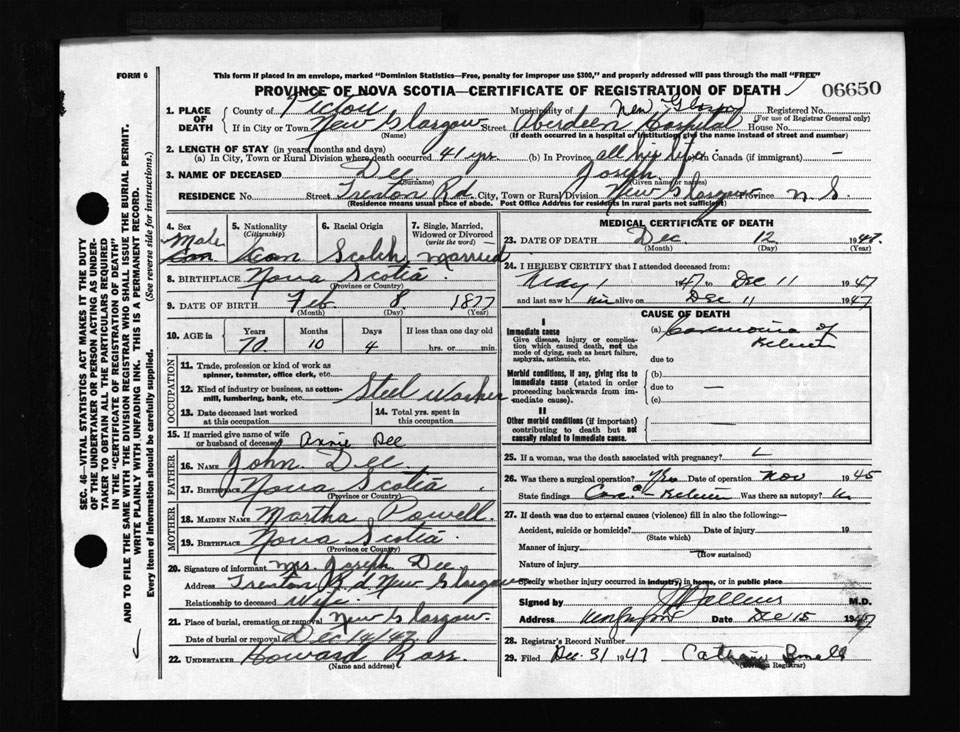 FORM 6
This form if placed in an envelope, marked "Dominion Statistics—Free, penalty for improper use $300," and properly addressed will pass through the mail "FREE"
PROVINCE OF NOVA SCOTIA—CERTIFICATE OF REGISTRATION OF DEATH 06650
1. PLACE OF DEATH
County of Pictou Municipality of New Glasgow Registered No.
(For use of Registrar General only)
If in City or Town New Glasgow Street Aberdeen Hospital House No.
(Name) (If death occurred in a hospital or institution, give the name instead of street and number)
2. LENGTH OF STAY (in years, months and days)
(a) In City, Town or Rural Division where death occurred 41 yrs (b) In Province all his life In Canada (if immigrant) —
3. NAME OF DECEASED Dee Joseph
(Surname) (Given name or names)
RESIDENCE No. Street Trenton Rd. City, Town or Rural Division New Glasgow Province N. S.
(Residence means usual place of abode. Post Office Address for residents in rural parts not sufficient)
4. Sex Male
5. Nationality (Citizenship) Can
6. Racial Origin Scotch
7. Single, Married, Widowed or Divorced (write the word) Married
8. BIRTHPLACE Nova Scotia
(Province or Country)
9. DATE OF BIRTH Feb 8 1877
(Month) (Day) (Year)
10. AGE in Years Months Days If less than one day old
70 10 4 hrs. or min.
OCCUPATION
11. Trade, profession or kind of work as spinner, teamster, office clerk, etc.
12. Kind of industry or business, as cotton-mill, lumbering, bank, etc. Steel Worker
13. Date deceased last worked at this occupation
14. Total yrs. spent in this occupation
15. If married give name of wife or husband of deceased Annie Dee
FATHER
16. NAME John Dee
17. BIRTHPLACE Nova Scotia
(Province or Country)
MOTHER
18. MAIDEN NAME Martha Powell.
19. BIRTHPLACE Nova Scotia
(Province or Country)
20. Signature of informant Mrs. Joseph Dee
Address Trenton Rd. New Glasgow
Relationship to deceased Wife
21. Place of burial, cremation or removal New Glasgow
Date of burial or removal Dec 14/47
22. UNDERTAKER Howard Ross.
(Name and address)
MEDICAL CERTIFICATE OF DEATH
23. DATE OF DEATH Dec 12 1947.
(Month) (Day)
24. I HEREBY CERTIFY that I attended deceased from:
May 1 1947 to Dec 11 1947
and last saw him alive on Dec 11 1947
CAUSE OF DEATH
I
Immediate cause
Give disease, injury or complication which caused death, not the mode of dying, such as heart failure, asphyxia, asthenia, etc.
(a) Carcinoma of
due to
Morbid conditions, if any, giving rise to immediate cause (stated in order proceeding backwards from immediate cause).
(b)
due to —
(c)
II
Other morbid conditions (if important) contributing to death but not causally related to immediate cause.
25. If a woman, was the death associated with pregnancy?
26. Was there a surgical operation? Yes Date of operation Nov 1945
State findings Was there an autopsy? No
27. If death was due to external causes (violence) fill in also the following:—
Accident, suicide or homicide? Date of injury 19
(State which)
Manner of injury
(How sustained)
Nature of injury
Specify whether injury occurred in industry, in home, or in public place
Signed by M.D.
Address Date Dec 15 1947
28. Registrar's Record Number
29. Filed Dec. 31 1947
(Division Registrar)
SEC. 46—VITAL STATISTICS ACT MAKES IT THE DUTY
OF THE UNDERTAKER OR PERSON ACTING AS UNDER-
TAKER TO OBTAIN ALL THE PARTICULARS REQUIRED
IN THE "CERTIFICATE OF REGISTRATION OF DEATH"
AND TO FILE THE SAME WITH THE DIVISION REGISTRAR WHO SHALL ISSUE THE BURIAL PERMIT.
WRITE PLAINLY WITH UNFADING INK. THIS IS A PERMANENT RECORD.
Every item of information should be carefully supplied. (See reverse side for instructions.)